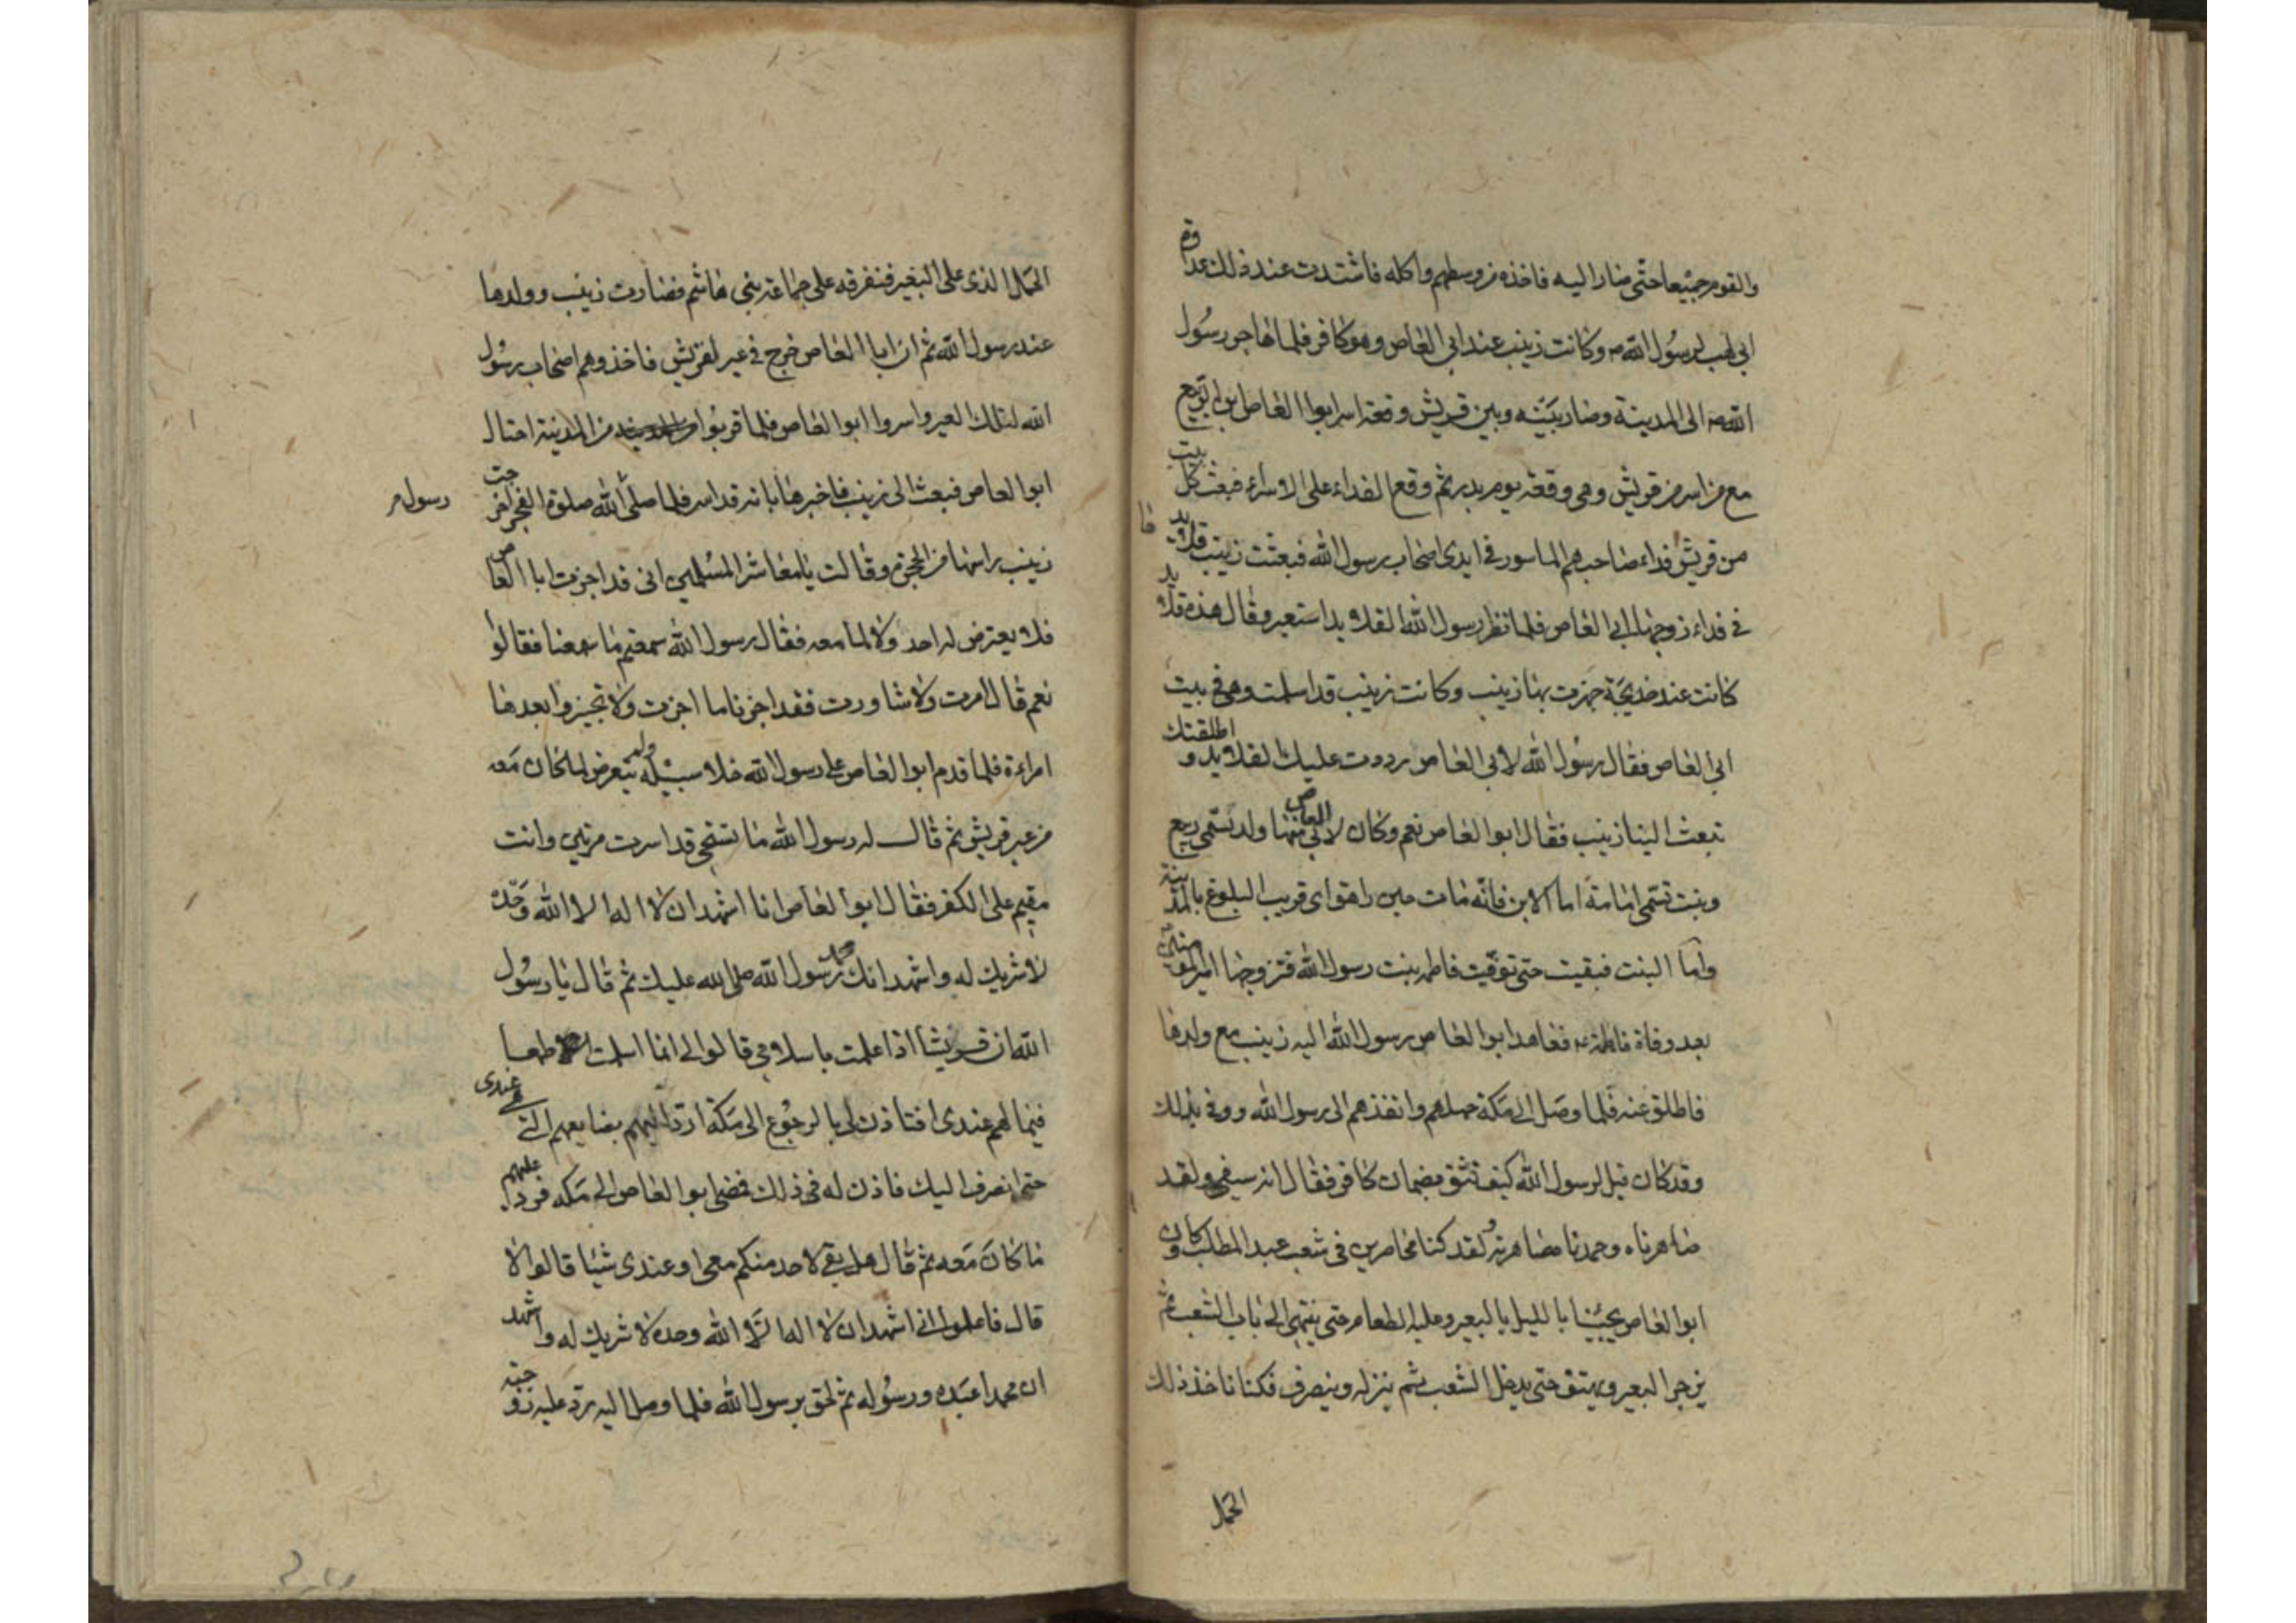 والقوم جميعا حتى صار اليه فاخذه من وسطهم واكله فاشتدت عند ذلك عداوة
ابى لهب لرسول الله ص وكانت زينب عند ابى العاص وهو كافر فلما هاجر رسول
الله ص الى المدينة وصار بينه وبين قريش وقعة اسر ابوا العاص بن الربيع
مع من اسر من قريش وهى وقعة يوم بدر ثم وقع الفداء على الاسراء فبعث كل بيت
من قريش فداء صاحبهم الماسور فى ايدى اصحاب رسول الله فبعثت زينب قلايد
ها
فى فداء زوجها ابى العاص فلما نظر رسول الله القلايد استعبر وقال هذه قلايد
كانت عند خديجة جهزت بها زينب وكانت زينب قد اسلمت وهى فى بيت
ابى العاص فقال رسول الله لابى العاص رددت عليك القلايد و اطلقتك
تبعث الينا زينب فقال ابوا العاص نعم وكان لابى العاص منها ولد تسمى ربيع
وبنت تسمى امامة اما الابن فانه مات حين راهق اى قريب البلوغ بالمدينة
واما البنت فبقيت حتى توفيت فاطمه بنت رسول الله فتزوجها امير المؤمنين
بعد وفاة فاطمة ع فعاهد ابوا العاص رسول الله اليه زينب مع ولدها
فاطلق عنه فلما وصل الى مكة حملهم وانفذهم الى رسول الله ووفى بذلك
وقد كان قيل لرسول الله كيف تثق بضمان كافر فقال انه سيفى ولقد
صاهرناه وحمدنا مصاهرته لقد كنا محاصرين فى شعب عبد المطلب وكان
ابوا العاص يجيئنا بالليل بالبعير وعليه الطعام حتى ينتهى الى باب الشعب ثم
يزجر البعير ويهتف حتى يدخل الشعب ثم ينزله وينصرف فكنا ناخذ ذلك
الحمل
الحمل الذى على البعير فنفرقه على جماعة بنى هاشم فصارت زينب وولدها
عند رسول الله ثم ان ابا العاص خرج فى عير لقريش فاخذوهم اصحاب رسول
الله لتلك العير واسروا ابوا العاص فلما قربوا من المدينة احتال
ابوا العاص فبعث الى زينب فاخبرها بانه قد اسر فلما صلى الله صلوة الفجر اخرجت
رسول
زينب راسها من الحجرة وقالت يا معاشر المسلمين انى قد اجرت ابا العاص
فلا يعترض له احد ولا لما معه فقال رسول الله سمعتم ما سمعنا فقالوا
نعم قال ما امرت ولا شاورت فقد اجرنا ما اجرت ولا تجيزوا بعدها
امراءة فلما قدم ابوا العاص على رسول الله خلا سبيله ولم يتعرض لما كان معه
من عير قريش ثم قال له رسول الله ما تستحى قد اسرت مرتين وانت
مقيم على الكفر فقال ابوا العاص انا اشهد ان لا اله الا الله وحده
لا شريك له واشهد انك محمد رسول الله صلى الله عليك ثم قال يا رسول
الله ان قريشا اذا علمت باسلامى قالوا لى انما اسلمت طمعا
فيما لهم عندى افتاذن لى بالرجوع الى مكة ارد اليهم بضايعهم التى عندى
حتى انصرف اليك فاذن له فى ذلك فمضى ابوا العاص الى مكه فرد عليهم
ما كان معه ثم قال هل بقى لاحد منكم معى او عندى شيئا قالوا لا
قال فاعلموا انى اشهد ان لا اله الا الله وحده لا شريك له واشهد
ان محمدا عبده ورسوله ثم لحق برسول الله فلما وصل اليه رد عليه زوجته